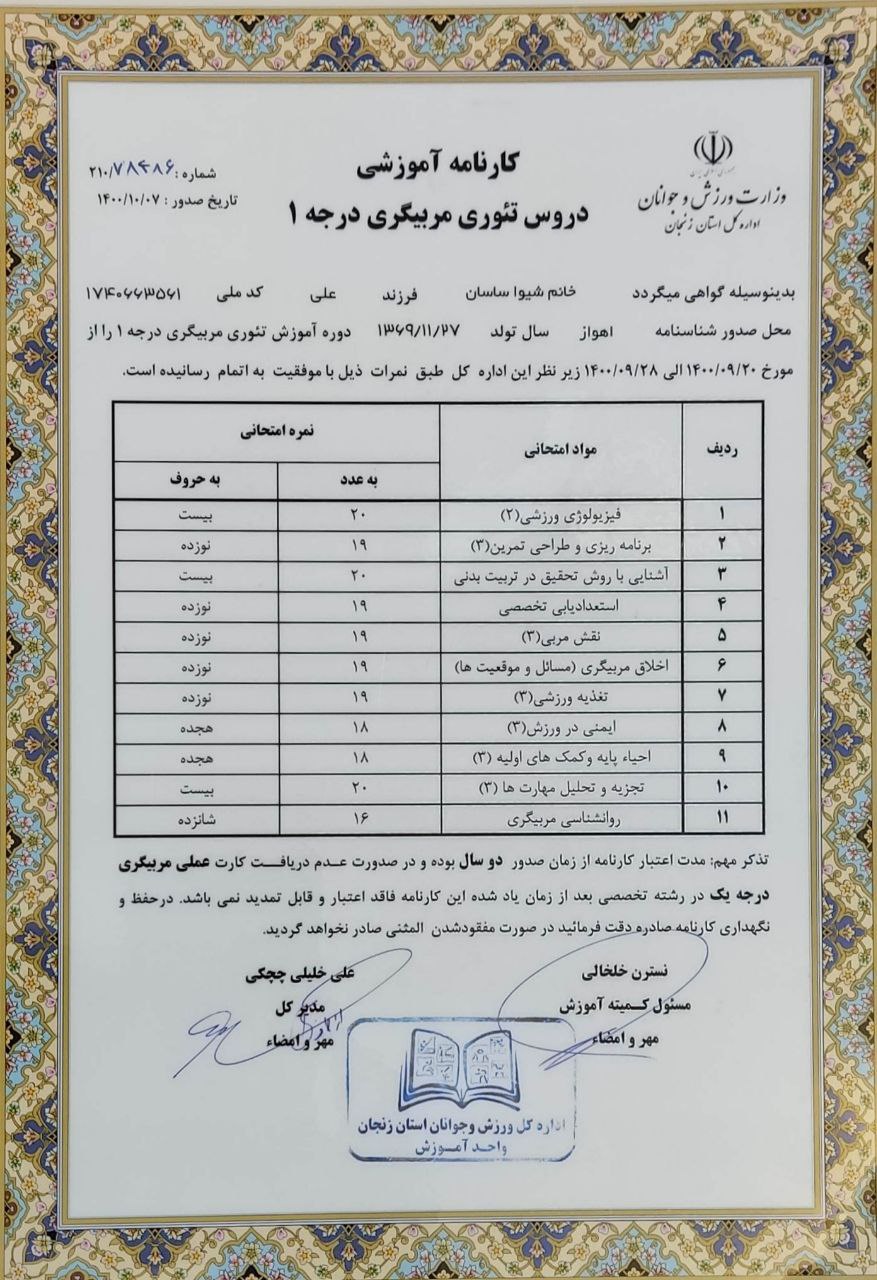 کارنامه آموزشی
دروس تئوری مربیگری درجه ۱
وزارت ورزش و جوانان
اداره کل استان زنجان
شماره: ۲۱۰/۷۸۴۸۶
تاریخ صدور : ۱۴۰۰/۱۰/۰۷
بدینوسیله گواهی میگردد خانم شیوا ساسان فرزند علی کد ملی ۱۷۴۰۶۶۳۵۶۱
محل صدور شناسنامه اهواز سال تولد ۱۳۶۹/۱۱/۲۷ دوره آموزش تئوری مربیگری درجه ۱ را از
مورخ ۱۴۰۰/۰۹/۲۰ الی ۱۴۰۰/۰۹/۲۸ زیر نظر این اداره کل طبق نمرات ذیل با موفقیت به اتمام رسانیده است.
ردیف مواد امتحانی نمره امتحانی
به عدد به حروف
۱ فیزیولوژی ورزشی(۲) ۲۰ بیست
۲ برنامه ریزی و طراحی تمرین(۳) ۱۹ نوزده
۳ آشنایی با روش تحقیق در تربیت بدنی ۲۰ بیست
۴ استعدادیابی تخصصی ۱۹ نوزده
۵ نقش مربی(۳) ۱۹ نوزده
۶ اخلاق مربیگری (مسائل و موقعیت ها) ۱۹ نوزده
۷ تغذیه ورزشی(۳) ۱۹ نوزده
۸ ایمنی در ورزش(۳) ۱۸ هجده
۹ احیاء پایه وکمک های اولیه (۳) ۱۸ هجده
۱۰ تجزیه و تحلیل مهارت ها (۳) ۲۰ بیست
۱۱ روانشناسی مربیگری ۱۶ شانزده
تذکر مهم: مدت اعتبار کارنامه از زمان صدور دو سال بوده و در صدورت عدم دریافت کارت عملی مربیگری
درجه یک در رشته تخصصی بعد از زمان یاد شده این کارنامه فاقد اعتبار و قابل تمدید نمی باشد. درحفظ و
نگهداری کارنامه صادره دقت فرمائید در صورت مفقودشدن المثنی صادر نخواهد گردید.
نسترن خلخالی
مسئول کمیته آموزش
مهر و امضاء
علی خلیلی چچکی
مدیر کل
مهر و امضاء
اداره کل ورزش وجوانان استان زنجان
واحد آموزش